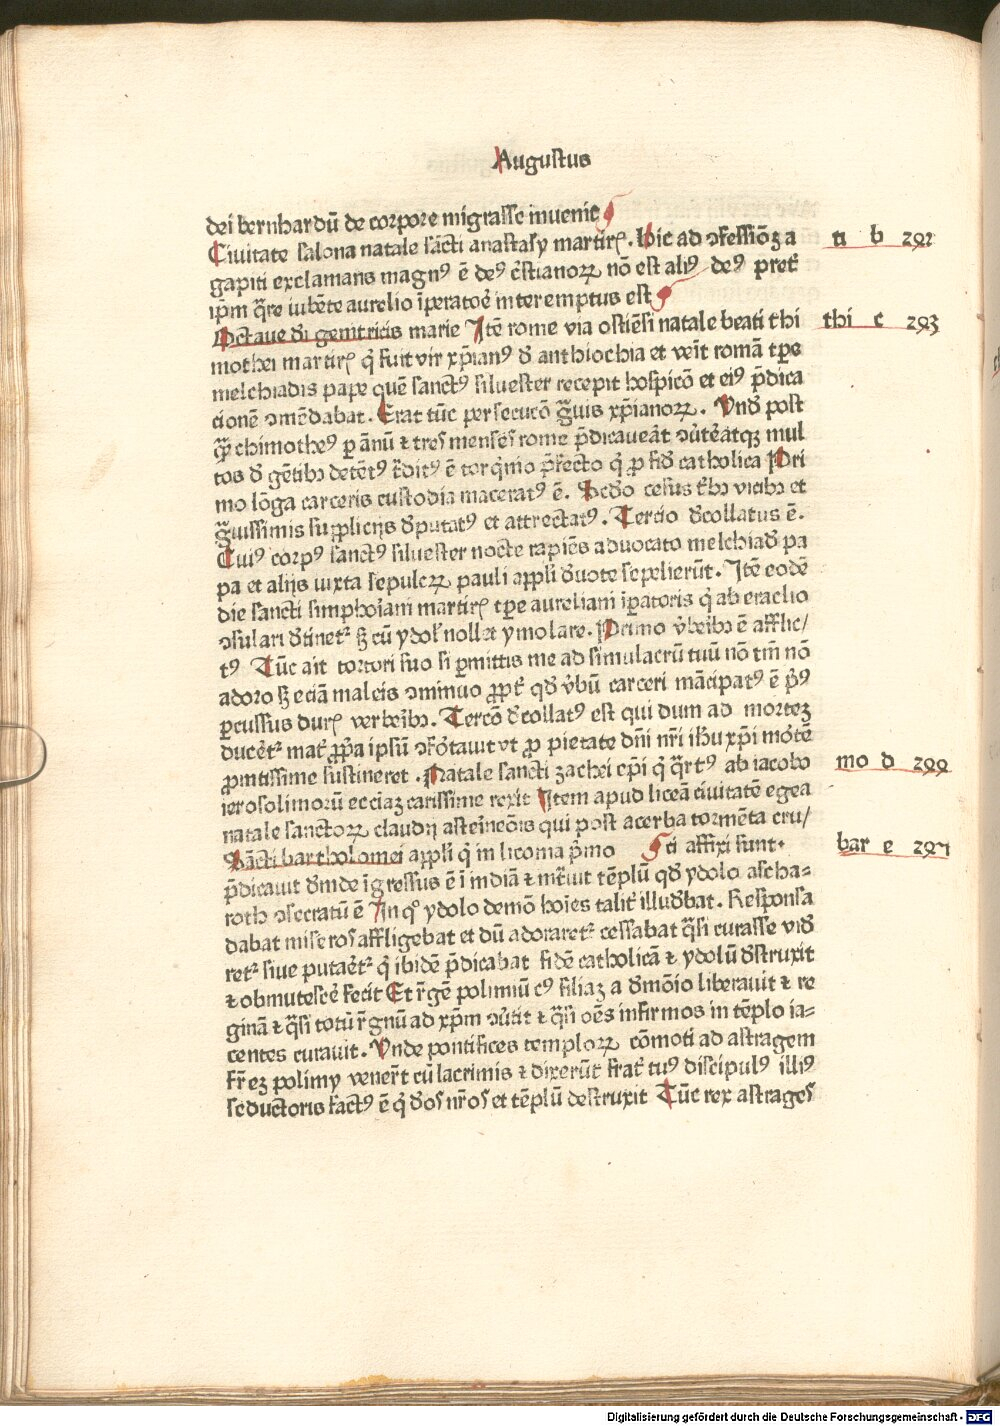 Augustus
dei bernhardū de corpore migrasse inuenit
Ciuitate salona natale sācti anastasy martirꝭ. Hic ad ↄfessiōꝫ a ti b 292
gapiti exclamans magnꝰ ē deꝰ c̄stianoꝝ nō est aliꝰ deꝰ pret̉
ip̄m q̄re iubēte aurelio īperatoē interemptus est
Octaue dī genitricis marie Itē rome via ostiēsi natale beati thi thi c 293
mothei martirꝭ q̇ fuit vir xp̄ianꝰ d̄ anthiochia et veīt romā tp̄e
melchiadis pape quē sanctꝰ siluester recepit hospicō et eiꝰ p̄dica
cionē ↄmēdabat. Erat tūc persecucō g̃uis xp̄ianoꝝ. Vnd̄ post
q̄ꝫ thimotheꝰ ꝑ ānū ⁊ tres menses rome p̄dicaueāt ↄūteātqꝫ mul
tos d̄ gētibꝫ detētꝰ t̄ditꝰ ē torq̇nio p̄fecto q̇ ꝓ fid̄ catholica Pri
mo lōga carceris custodia maceratꝰ ē. Scd̄o cesus t̄bꝫ vicibꝫ et
g̃uissimis supplicijs d̄putatꝰ et attrectatꝰ. Tercio d̄collatus ē.
Cuiꝰ corpꝰ sanctꝰ siluester nocte rapiēs aduocato melchiad̄ pa
pa et alijs iuxta sepulcꝝ pauli appl̄i d̄uote sepelierūt. Itē eodē
die sancti simphoīani martirꝭ tp̄e aureliani ip̄atoris q̇ ab eraclio
ↄsulari d̄tinetᷣ sꝫ cū ydol̉ nollet ymolare. Primo v̄beibꝫ ē afflic/
tꝰ Tūc ait tortori suo si ꝑmittis me ad simulacrū tuū nō tm̄ nō
adoro sꝫ eciā malleis ↄminuo ꝓpt̉ qd̄ v̄bū carceri mācipatꝰ ē p̄ꝰ
ꝑcussus durꝭ verbeībꝫ. Tercō d̄collatꝰ est qui dum ad mortez
ducētᷣ mat̉ ꝓp̄a ipsū ↄfōtauit vt ꝓ pietate dn̄i nr̄i ih̄u xp̄i mōtē
ꝓmtissime sustineret. Natale sancti zachei ep̄i q̇ q̄rtꝰ ab iacobo mo d 290
ierosolimorū ecciaꝫ carissime rexit Item apud liceā ciuitatē egea
natale sanctoꝝ claudij asteineōis qui post acerba tormēta cru/
Sācti bartholomei appl̄i q̇ in licoma p̄mo ¶ ti affixi sunt. bar e 291
p̄dicauit d̄inde īgressus ē ī indiā ⁊ īt̄uit tēplū qd̄ ydolo ascha=
roth ↄsecratū ē In qͦ ydolo demō hoīes talit̉ illud̄bat. Responsa
dabat miseros affligebat et dū adoraretᷣ cessabat q̄si curasse vid̄
retᷣ siue putaētᷣ q̇ ibidē p̄dicabat fidē catholicā ⁊ ydolū d̄struxit
⁊ obmutescē fecit Et r̄gē polimiū cꝰ filiaꝫ a d̄mōio liberauit ⁊ re
ginā ⁊ q̄si totū r̄gnū ad xp̄m ↄūtit ⁊ q̄si oēs infirmos in tēplo ia=
centes curauit. Vnde pontifices temploꝝ cōmoti ad astragem
fr̄ez polimy venerūt cū lacrimis ⁊ dixerūt frat̉ tuꝰ discipulꝰ illiꝰ
seductoris factꝰ ē q̇ d̄os nr̄os et tēplū destruxit Tūc rex astrages
Digitalisierung gefördert durch die Deutsche Forschungsgemeinschaft - DFG